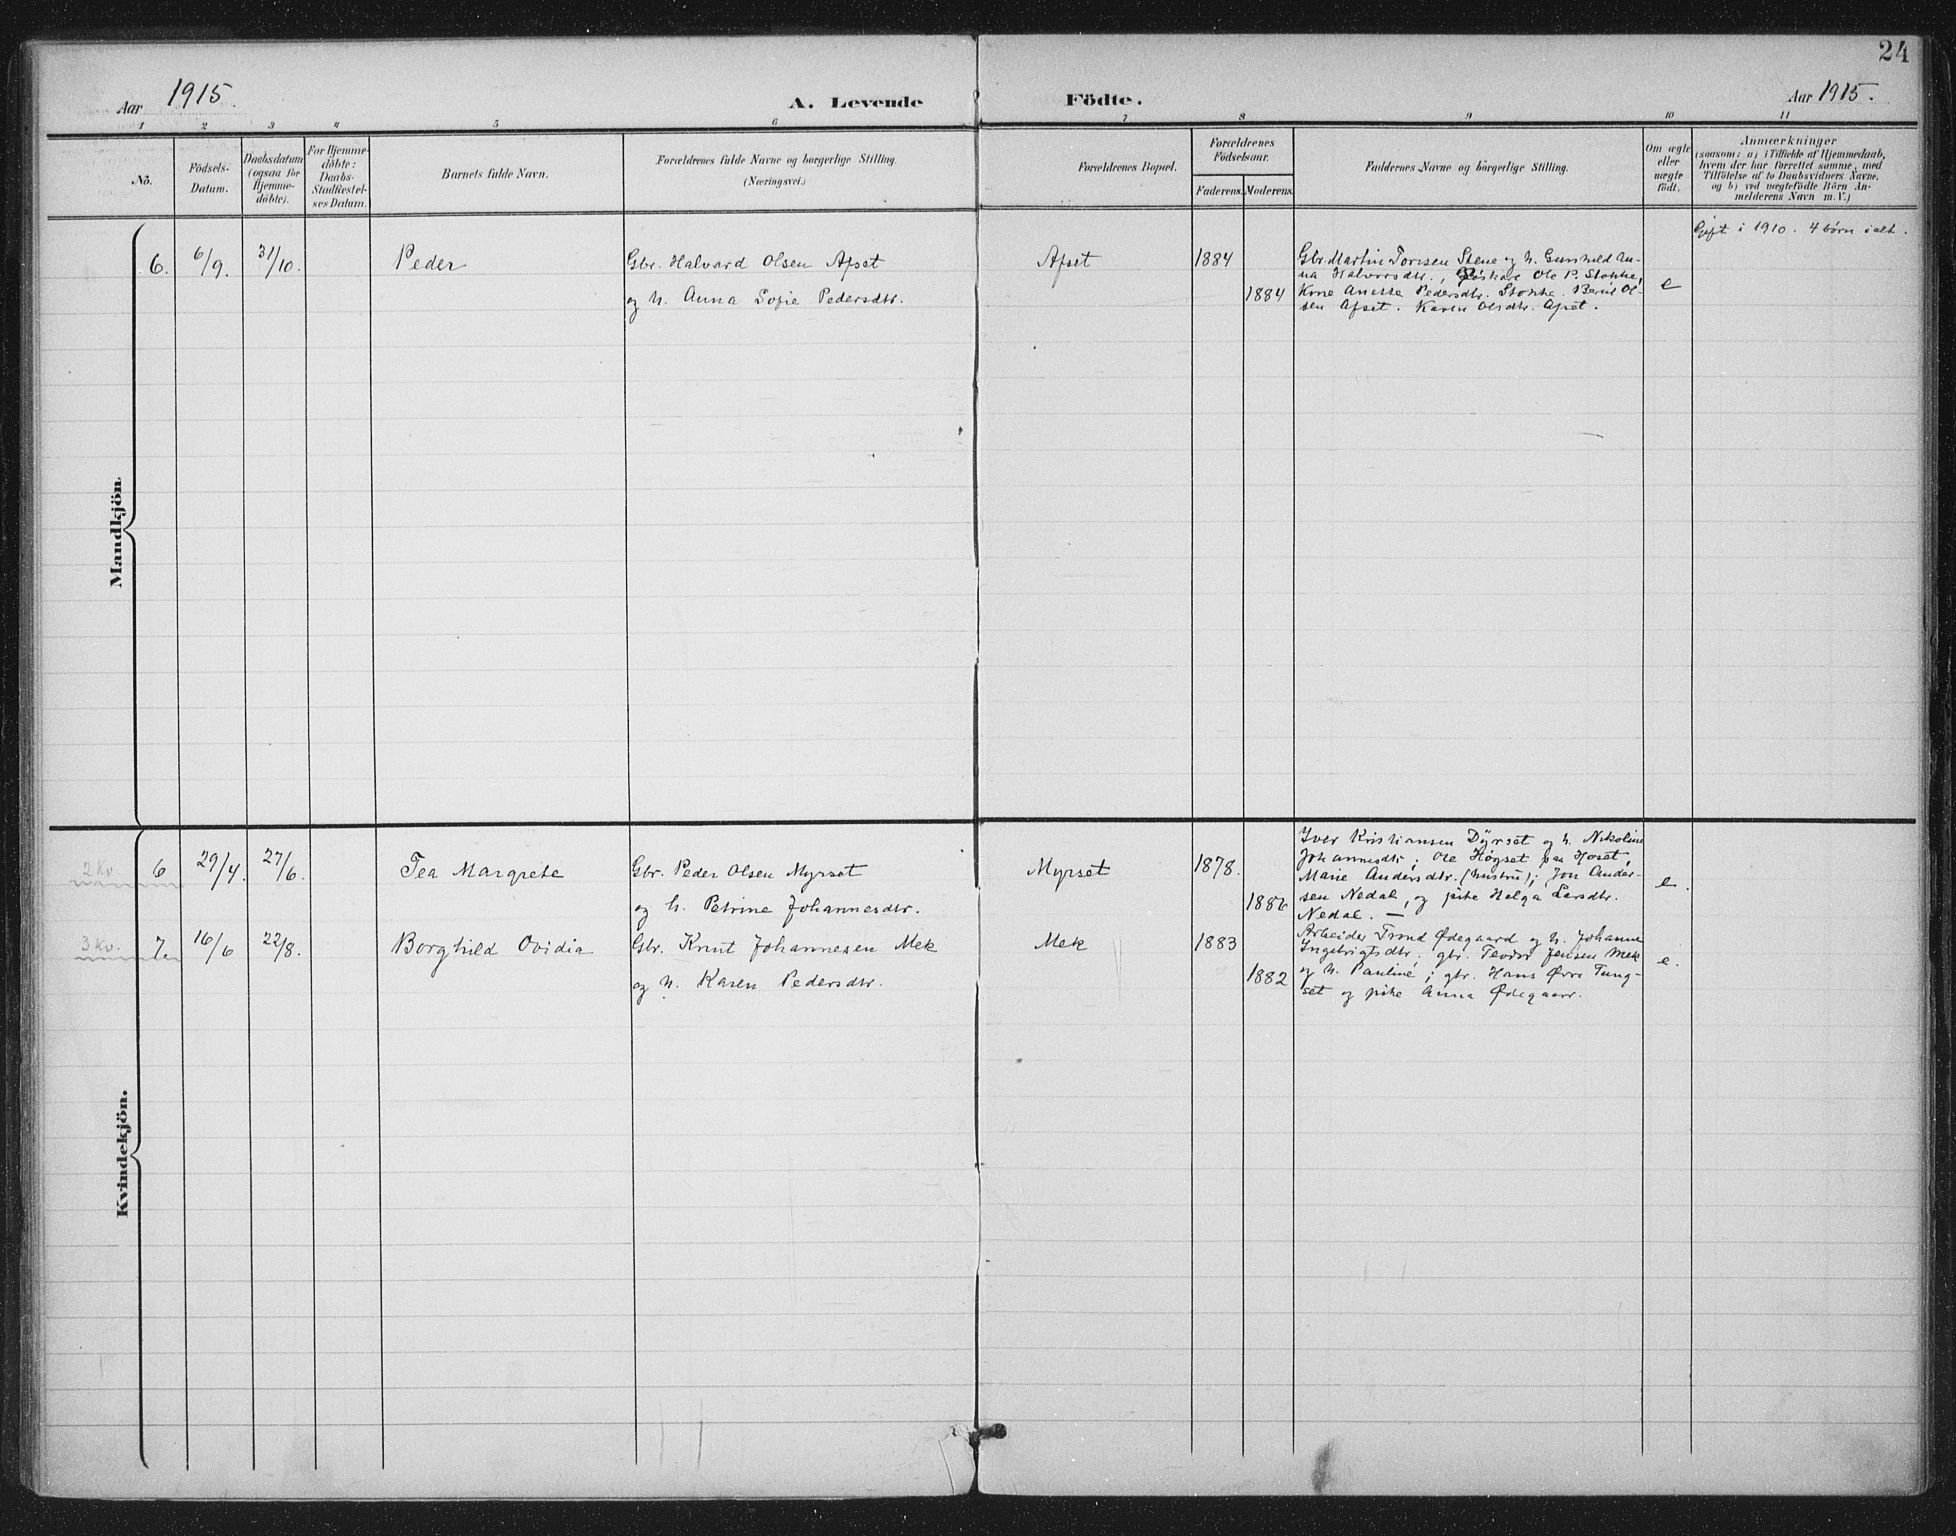 24
Aar 1915.
A. Levende Födte.
Aar 1915.
1 2 3 4 5 6 7 8 9 10 11
No.
Födsels-
Datum.
Daabsdatum
(ogsaa for
Hjemme-
döbte).
For Hjemme-
döbte:
Daabs-
Stadfæstel-
ses Datum.
Barnets fulde Navn.
Forældrenes fulde Navne og borgerlige Stilling.
(Næringsvei.)
Forældrenes Bopæl.
Forældrenes
Födselsaar.
Faderens. Moderens.
Faddernes Navne og borgerlige Stilling.
Om ægte
eller
uægte
födt.
Anmærkninger
(saasom: a) i Tilfælde af Hjemmedaab,
hvem der har forrettet samme, med
Tilföielse af to Daabsvidners Navne,
og b) ved uægtefödte Börn An-
melderens Navn m. V.)
Mandkjön.
6. 6/9. 31/10. Peder
Gbr. Halvard Olsen Afset
og h. Anna Sofie Pedersdtr.
Afset
1884
1884
Gbr. Martin Toresen Stene og h. Gunhild An-
na Halvorsdtr., Ole P. Stokke,
Kone Anette Pedersdtr. Stokke. Berit Ol-
sen Afset. Karen Olsdtr. Afset.
e
Gift i 1910. 4 börn i alt.
Kvindekjön.
2 Kv. 6 29/4. 27/6. Tea Margrete
Gbr. Peder Olsen Myrset
og h. Petrine Johannesdtr.
Myrset
1878.
1886
Iver Kristiansen Dyrset og h. Nikoline
Johannesdtr; Ole Högset paa Hoset,
Marie Andersdtr. (hustru); Jon Ander-
sen Nedal, og pike Helga Larsdtr.
Nedal. —
e.
3 Kv. 7. 16/6 22/8. Borghild Ovidia
Gbr. Knut Johannesen Mek
og h. Karen Pedersdtr.
Mek
1883
1882
Arbeider Trond Ødegaard og h. Johanne
Ingebrigtsdtr. gbr. Teodor Jensen Mek
og h. Pauline; gbr. Hans Övre Tung-
set og pike Anna Ødegaard.
e.